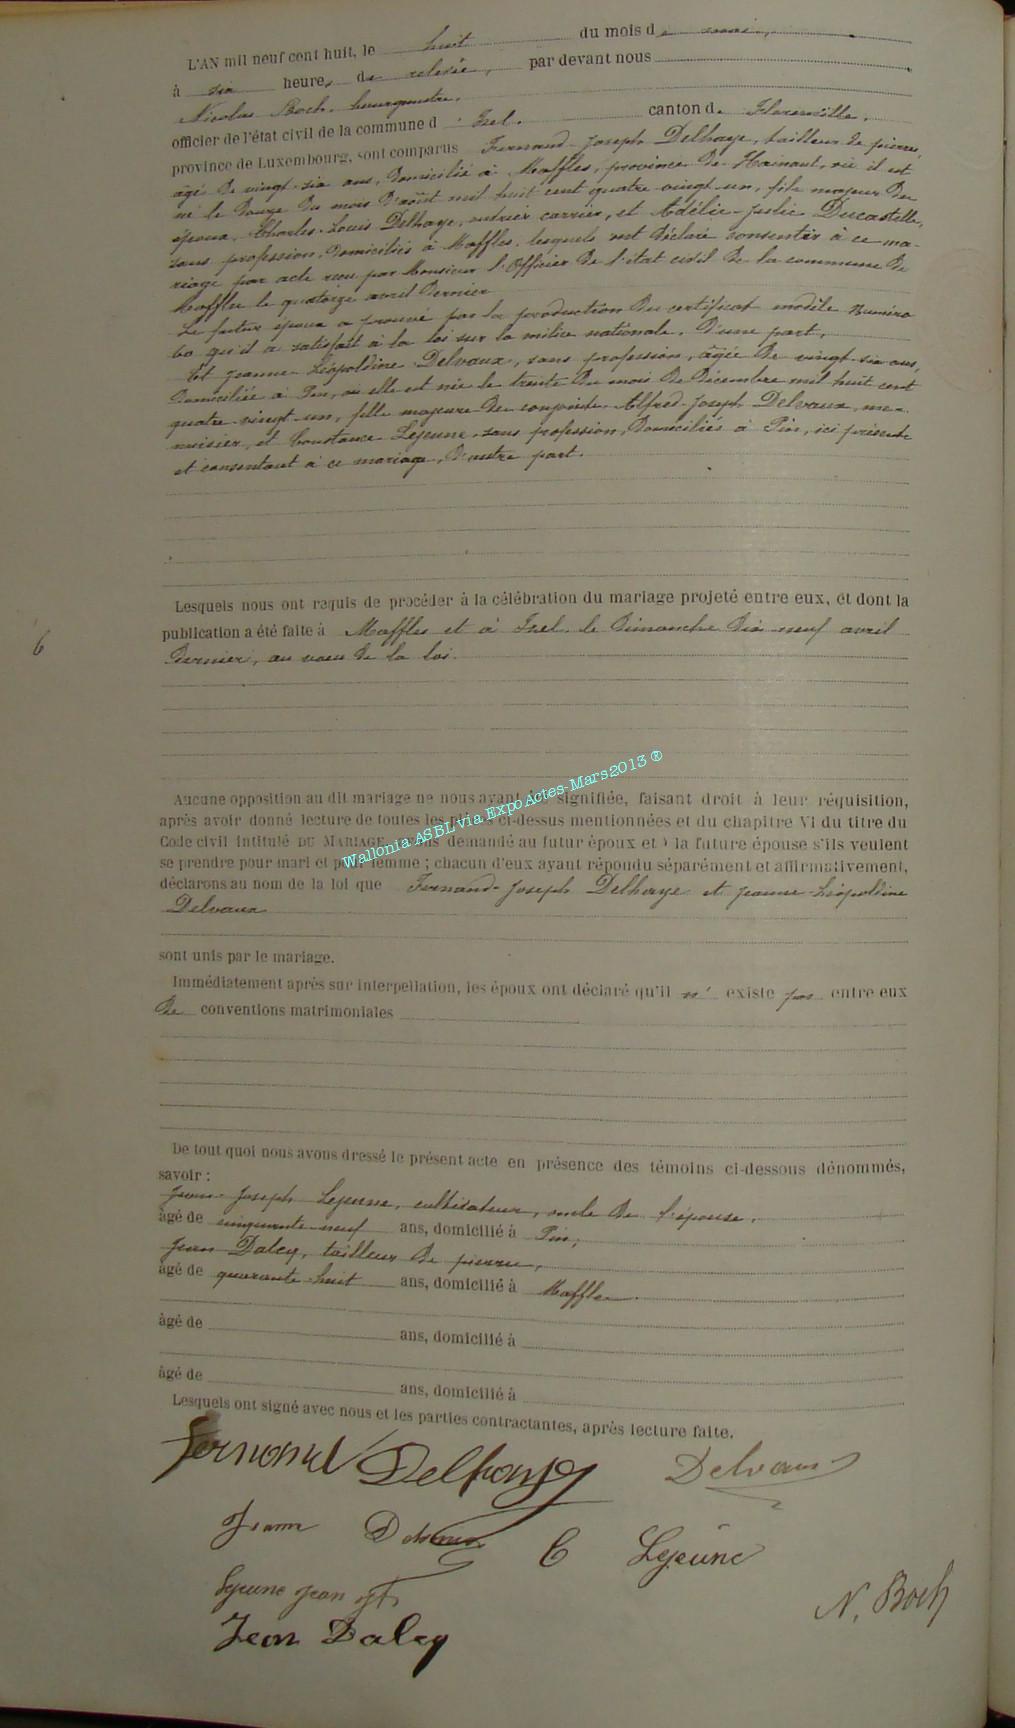 L'AN mil neuf cent huit, le huit du mois de mai,
à six heures de relevée, par devant nous
Nicolas Boch, bourgmestre,
officier de l'état civil de la commune d'Izel, canton de Florenville,
province de Luxembourg, sont comparus Fernand-Joseph Delhaye, tailleur de pierres,
âgé de vingt-six ans, domicilié à Maffles, province de Hainaut, où il est
né le douze du mois d'août mil huit cent quatre-vingt-un, fils majeur des
époux Charles-Louis Delhaye, ouvrier carrier, et Adélie-Julie Ducastelle,
sans profession, domiciliés à Maffles, lesquels ont déclaré consentir à ce ma-
riage par acte reçu par Monsieur l'Officier de l'état civil de la commune de
Maffles le quatorze avril dernier
Le futur époux a prouvé par la production du certificat modèle numéro
60 qu'il a satisfait à la loi sur la milice nationale. D'une part,
Et Jeanne-Léopoldine Delvaux, sans profession, âgée de vingt-six ans,
domiciliée à Pin, où elle est née le trente du mois de décembre mil huit cent
quatre-vingt-un, fille majeure des conjoints Alfred-Joseph Delvaux, me-
nuisier, et Constance Lejeune, sans profession, domiciliés à Pin, ici présents
et consentant à ce mariage, d'autre part.
Lesquels nous ont requis de procéder à la célébration du mariage projeté entre eux, et dont la
publication a été faite à Maffles et à Izel, le dimanche dix-neuf avril
6
dernier, au vœu de la loi.
Wallonia ASBL via ExpoActes-Mars2013 ®
Aucune opposition au dit mariage ne nous ayant été signifiée, faisant droit à leur réquisition,
après avoir donné lecture de toutes les pièces ci-dessus mentionnées et du chapitre VI du titre du
Code civil intitulé DU MARIAGE, avons demandé au futur époux et à la future épouse s'ils veulent
se prendre pour mari et pour femme ; chacun d'eux ayant répondu séparément et affirmativement,
déclarons au nom de la loi que Fernand-Joseph Delhaye et Jeanne-Léopoldine
Delvaux
sont unis par le mariage.
Immédiatement après sur interpellation, les époux ont déclaré qu'il n'existe pas entre eux
de conventions matrimoniales
De tout quoi nous avons dressé le présent acte en présence des témoins ci-dessous dénommés,
savoir :
Jean-Joseph Lejeune, cultivateur, oncle de l'épouse,
âgé de cinquante-neuf ans, domicilié à Pin,
Jean Dalcq, tailleur de pierres,
âgé de quarante-huit ans, domicilié à Maffles.
âgé de ans, domicilié à
âgé de ans, domicilié à
Lesquels ont signé avec nous et les parties contractantes, après lecture faite.
Fernand Delhaye Delvaux
Jeanne Delvaux C Lejeune
Lejeune Jean Jh
N. Boch
Jean Dalcq